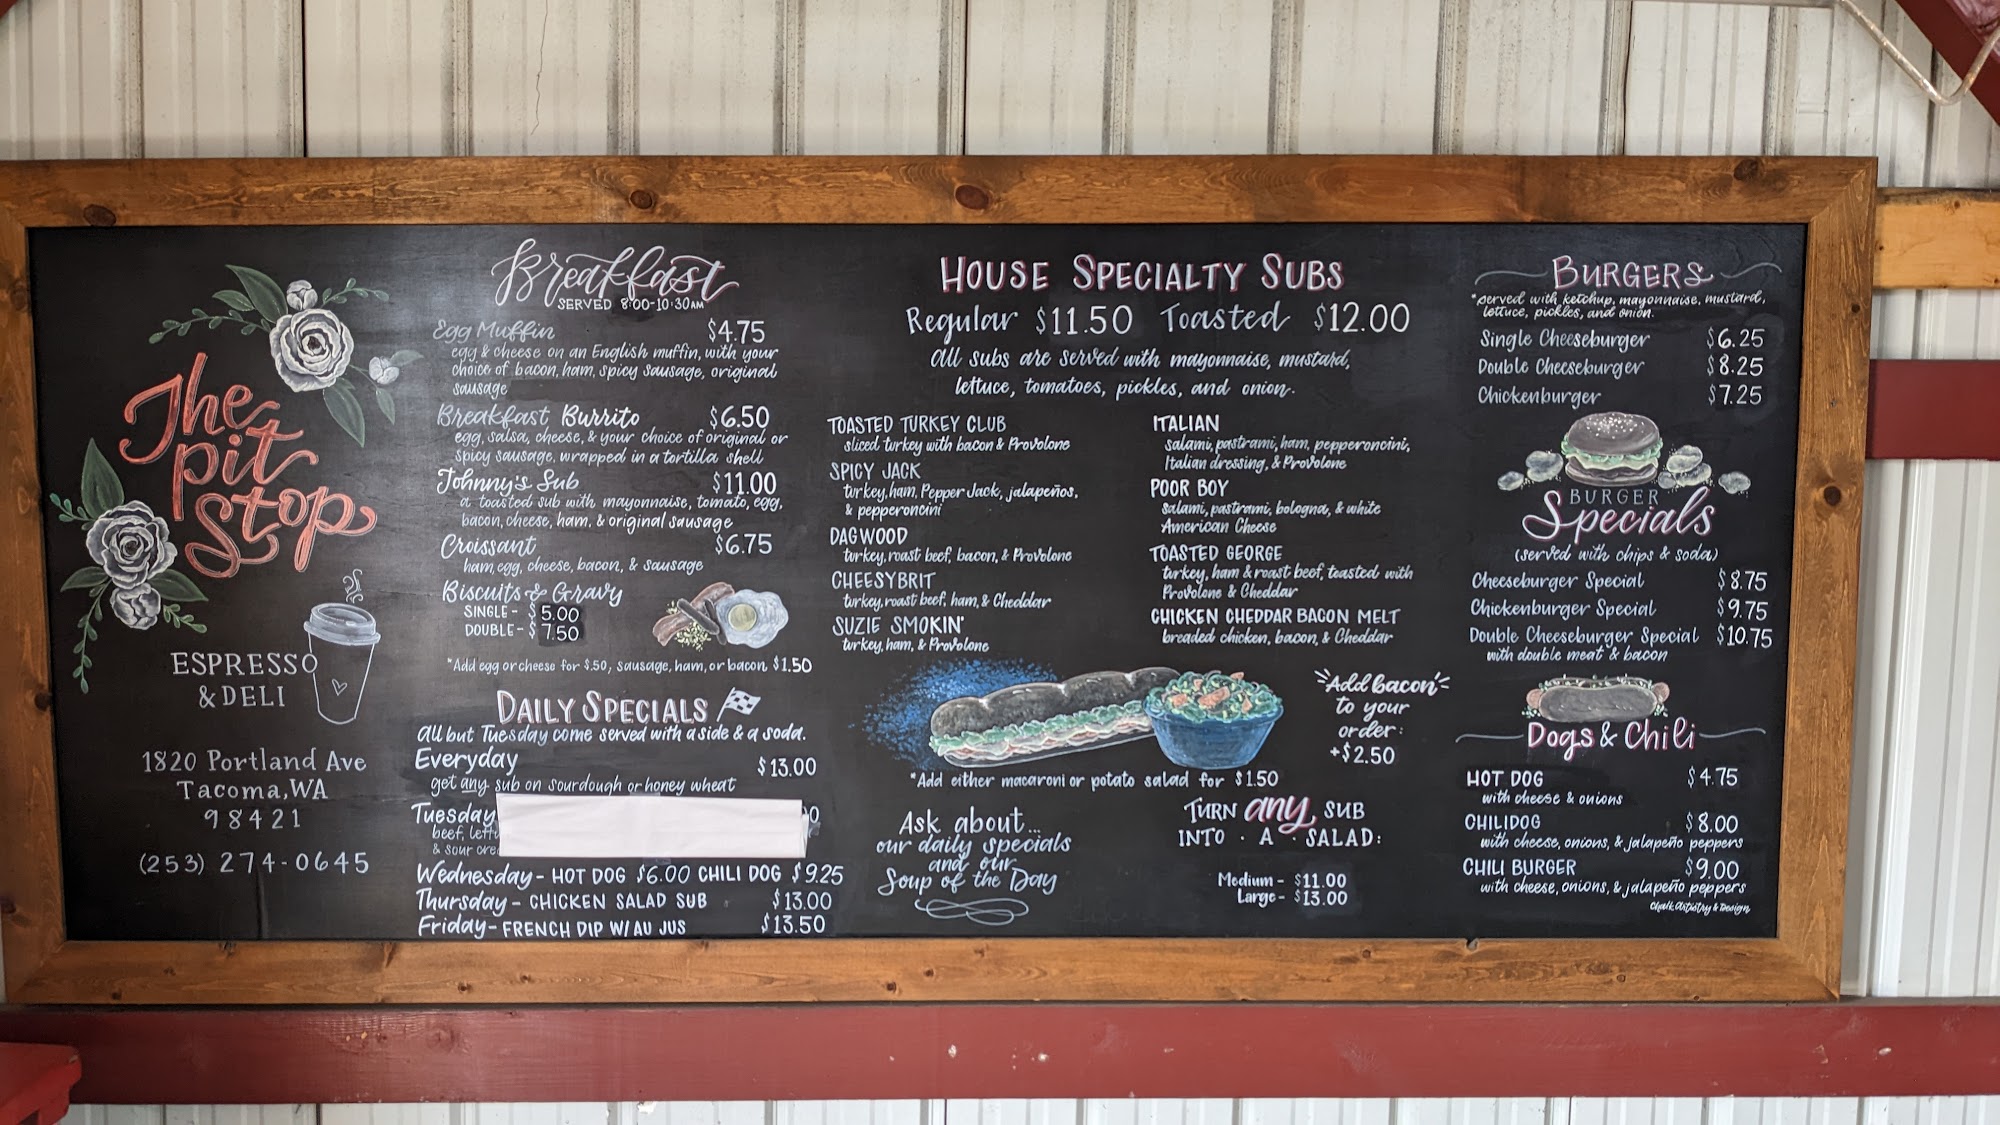 The
pit
Stop
ESPRESSO
& DELI
1820 Portland Ave
Tacoma, WA
98421
(253) 274-0645
Breakfast
SERVED 8:00-10:30AM
Egg Muffin $4.75
egg & cheese on an English muffin, with your
choice of bacon, ham, spicy sausage, original
sausage
Breakfast Burrito $6.50
egg, salsa, cheese, & your choice of original or
spicy sausage, wrapped in a tortilla shell
Johnny's Sub $11.00
a toasted sub with mayonnaise, tomato, egg,
bacon, cheese, ham, & original sausage
Croissant $6.75
ham, egg, cheese, bacon, & sausage
Biscuits & Gravy
SINGLE - $5.00
DOUBLE - $7.50
*Add egg or cheese for $.50, sausage, ham, or bacon $1.50
DAILY SPECIALS
All but Tuesday come served with a side & a soda.
Everyday $13.00
get any sub on sourdough or honey wheat
Tuesday
beef,
& sour
Wednesday - HOT DOG $6.00 CHILI DOG $9.25
Thursday - CHICKEN SALAD SUB $13.00
Friday - FRENCH DIP W/ AU JUS $13.50
HOUSE SPECIALTY SUBS
Regular $11.50 Toasted $12.00
All subs are served with mayonnaise, mustard,
lettuce, tomatoes, pickles, and onion.
TOASTED TURKEY CLUB
sliced turkey with bacon & Provolone
SPICY JACK
turkey, ham, Pepper Jack, jalapeños,
& pepperoncini
DAGWOOD
turkey, roast beef, bacon, & Provolone
CHEESYBRIT
turkey, roast beef, ham, & Cheddar
SUZIE SMOKIN'
turkey, ham, & Provolone
ITALIAN
salami, pastrami, ham, pepperoncini,
Italian dressing, & Provolone
POOR BOY
salami, pastrami, bologna, & white
American Cheese
TOASTED GEORGE
turkey, ham & roast beef, toasted with
Provolone & Cheddar
CHICKEN CHEDDAR BACON MELT
breaded chicken, bacon, & Cheddar
Add bacon
to your
order:
+$2.50
*Add either macaroni or potato salad for $1.50
Ask about...
our daily specials
and our
Soup of the Day
TURN any SUB
INTO · A · SALAD:
Medium - $11.00
Large - $13.00
BURGERS
*served with ketchup, mayonnaise, mustard,
lettuce, pickles, and onion.
Single Cheeseburger $6.25
Double Cheeseburger $8.25
Chickenburger $7.25
BURGER
Specials
(served with chips & soda)
Cheeseburger Special $8.75
Chickenburger Special $9.75
Double Cheeseburger Special $10.75
with double meat & bacon
Dogs & Chili
HOT DOG $4.75
with cheese & onions
CHILIDOG $8.00
with cheese, onions, & jalapeño peppers
CHILI BURGER $9.00
with cheese, onions, & jalapeño peppers
Chalk Artistry & Design